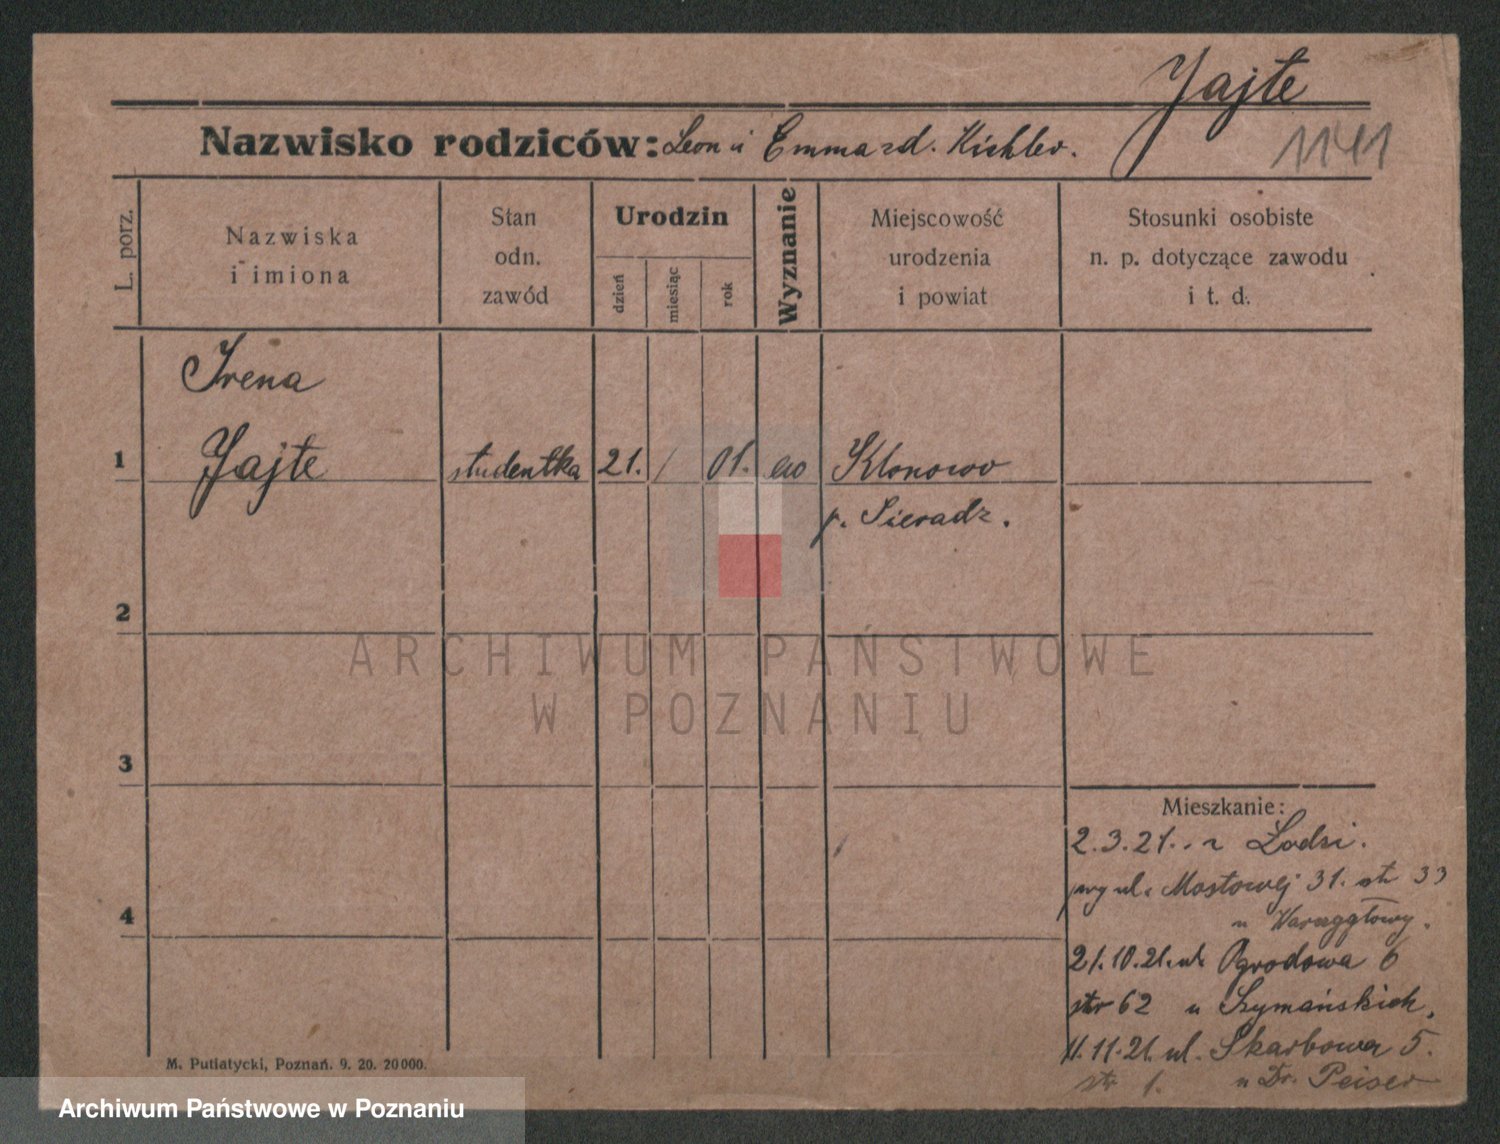 Jajte
1141
Nazwisko rodziców: Leon i Emma zd. Kichler.
L. porz.
Nazwiska
i imiona
Stan
odn.
zawód
Urodzin
dzień
miesiąc
rok
Wyznanie
Miejscowość
urodzenia
i powiat
Stosunki osobiste
n. p. dotyczące zawodu
i t. d.
Irena
1 Jajte studentka 21. / 01. ew Klonowo
p. Sieradz.
2
ARCHIWUM PAŃSTWOWE
W POZNANIU
3
Mieszkanie:
2.3.21. z Łodzi.
przy ul. Mostowej 31. str 33
u
4
21.10.21. ul. Ogrodowa 6
str 62 u Szymańskich.
11.11.21. ul. Skarbowa 5.
str 1. u Dr. Peiser
M. Putiatycki, Poznań. 9. 20. 20000.
Archiwum Państwowe w Poznaniu